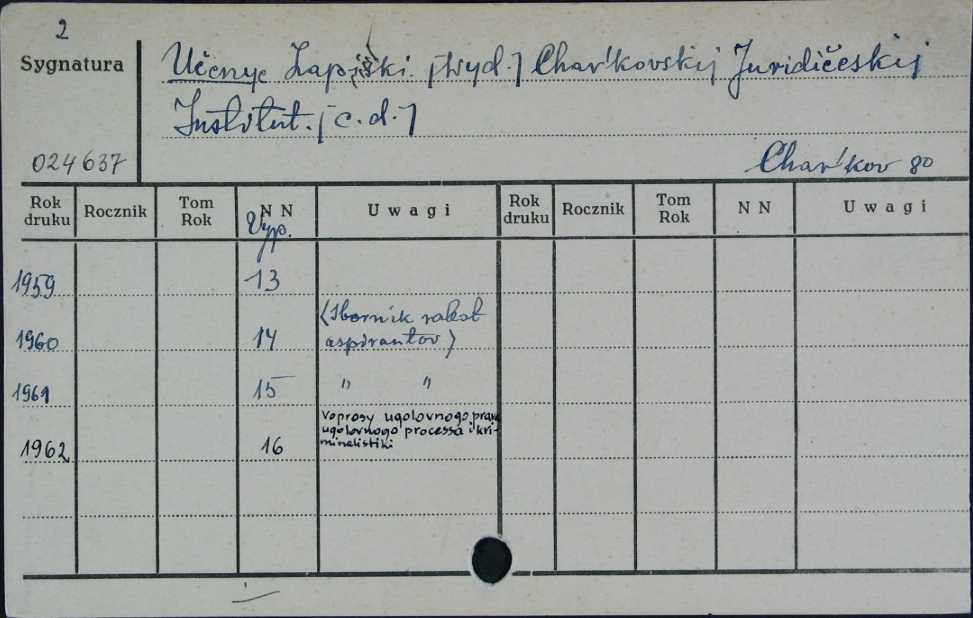 2
Sygnatura
Učenye Zapiski. [Wyd.] Char'kovskij Juridičeskij
Institut. [c.d.]
024637
Char'kov 80
Rok druku Rocznik Tom Rok N N Uwagi Rok druku Rocznik Tom Rok N N Uwagi
Vyp.
1959 13
1960 14 (Sbornik rabot aspirantov)
1961 15 " "
1962 16 Voprosy ugolovnogo prava ugolovnogo processa i kri-minalistiki